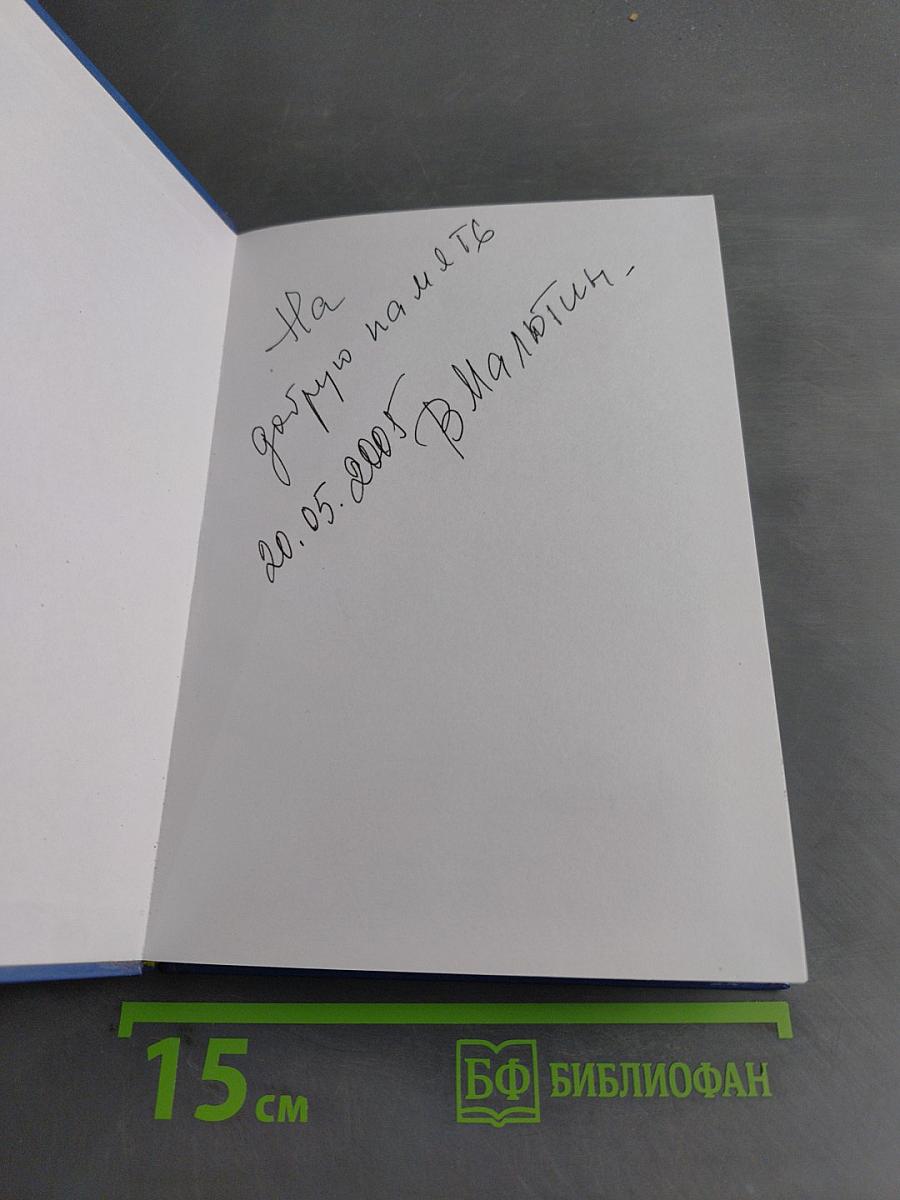 На
добрую память
20.05.2005 ВМалютин
15 см
БФ БИБЛИОФАН